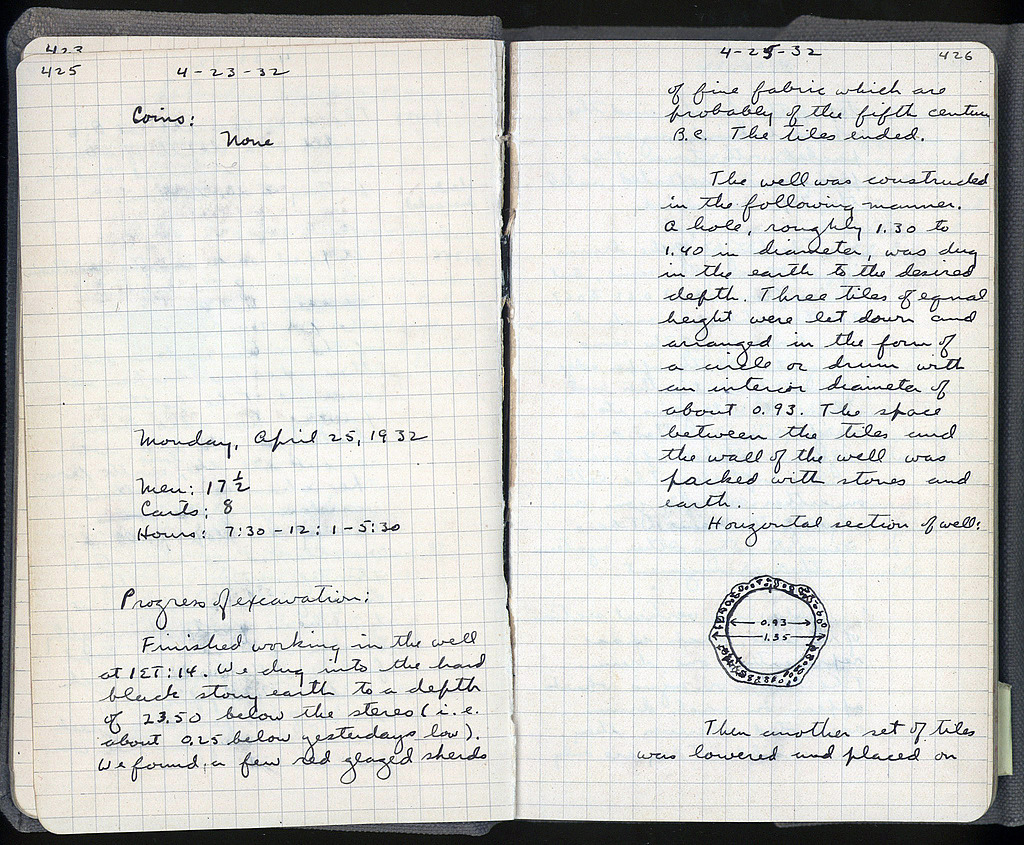 423
425
4-23-32
Coins:
None
Monday, April 25, 1932
Men: 17 ½
Carts: 8
Hours: 7:30 - 12: 1 - 5:30
Progress of excavation:
Finished working in the well
at 1ET:14. We dug into the hard
black stony earth to a depth
of 23.50 below the stereo (i.e.
about 0.25 below yesterdays low).
We found a few red glazed sherds
4-25-32
426
of fine fabric which are
probably of the fifth century
B.C. The tiles ended.
The well was constructed
in the following manner.
A hole, roughly 1.30 to
1.40 in diameter, was dug
in the earth to the desired
depth. Three tiles of equal
height were let down and
arranged in the form of
a circle or drum with
an interior diameter of
about 0.93. The space
between the tiles and
the wall of the well was
packed with stones and
earth.
Horizontal section of well:
0.93
1.35
Then another set of tiles
was lowered and placed on